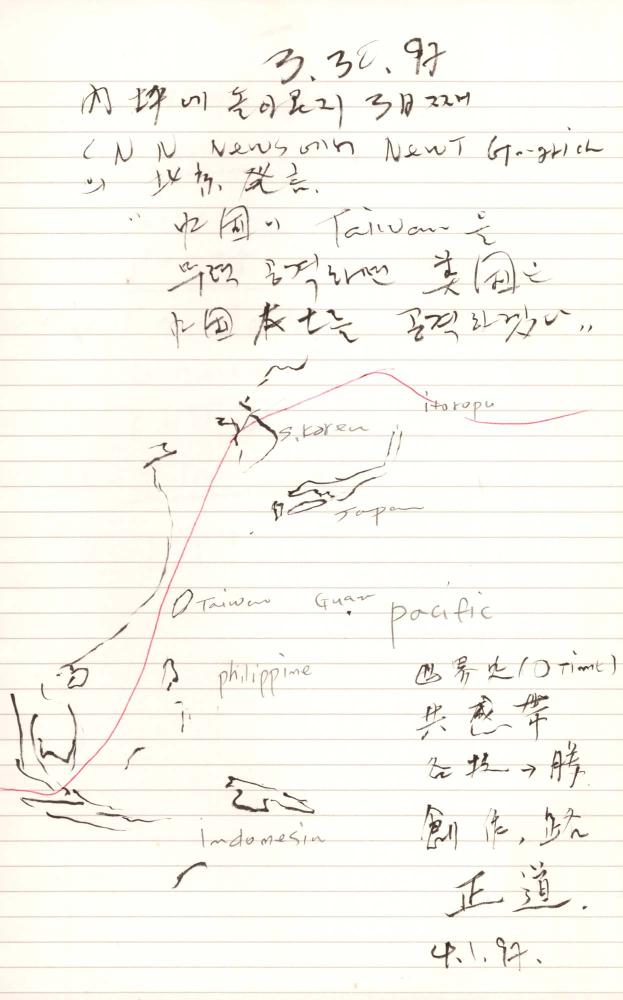 3.30.97
内坪에 돌아온지 3日째
CNN News에서 NewT Gingrich
의 北京 発言.
" 中国이 Taiwan을
무력 공격하면 美国은
中国 本土를 공격하겠다"
itoropu
S. Korea
Japan
Taiwan Guam
pacific
philippine
世界史(
共感帯
→ 勝
Indonesia
創作, 路
正道.
4.1.97.